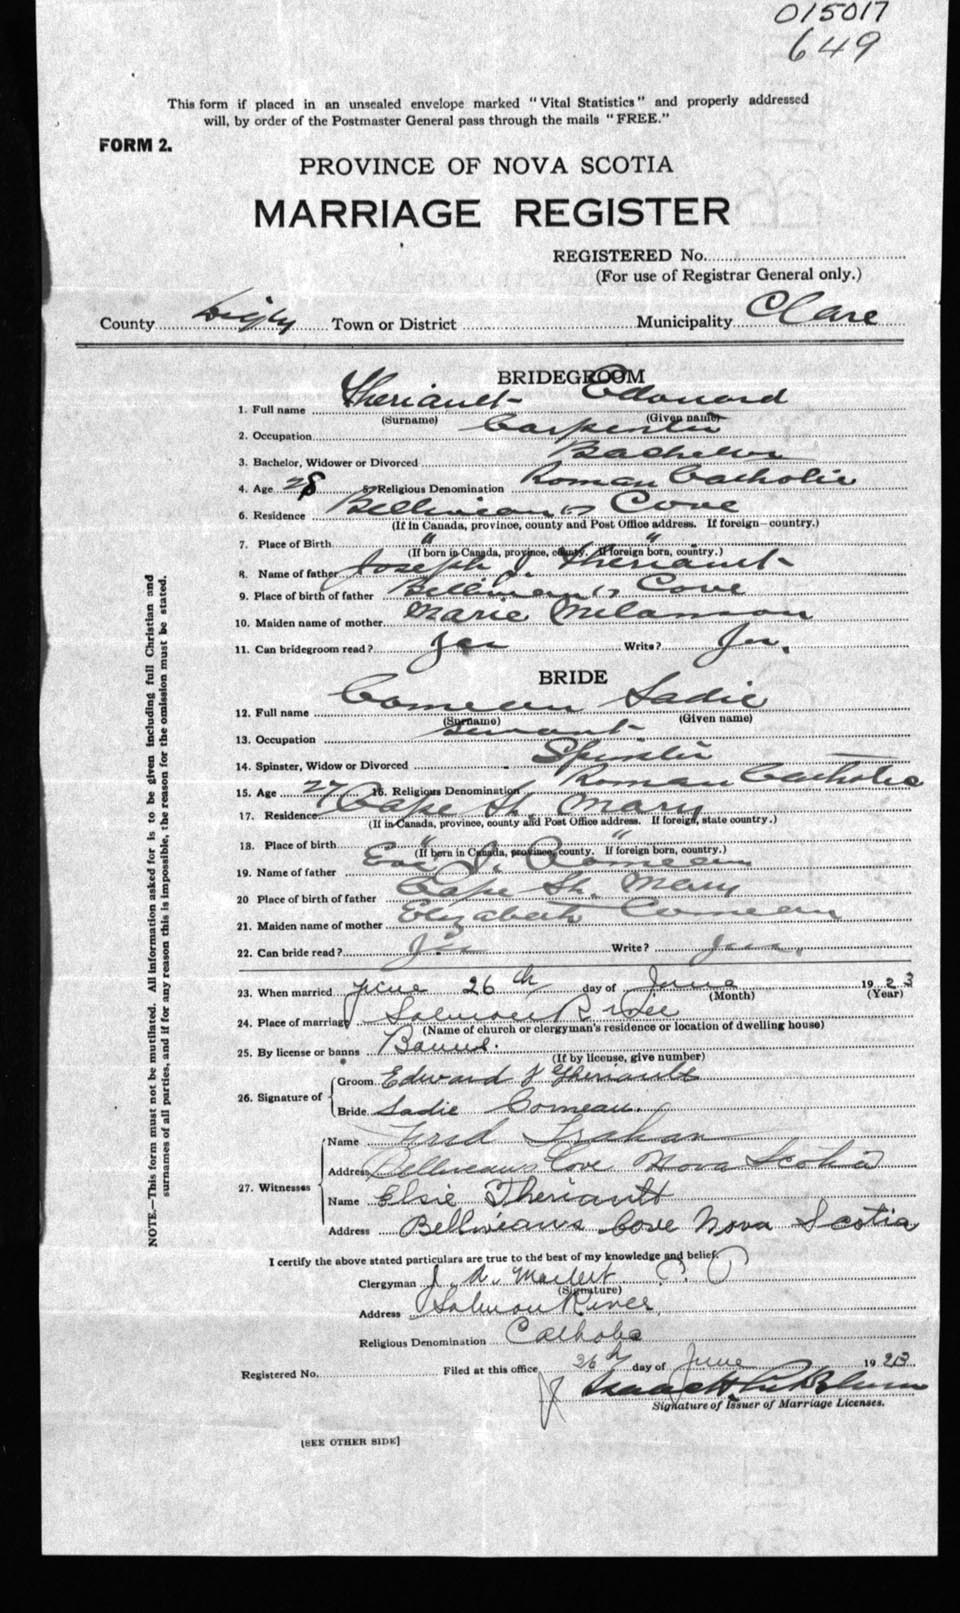 015017
649
This form if placed in an unsealed envelope marked "Vital Statistics" and properly addressed
will, by order of the Postmaster General pass through the mails "FREE."
FORM 2.
PROVINCE OF NOVA SCOTIA
MARRIAGE REGISTER
REGISTERED No.
(For use of Registrar General only.)
County Digby Town or District Municipality Clare
BRIDEGROOM
1. Full name Theriault Edouard
(Surname) (Given name)
2. Occupation Carpenter
3. Bachelor, Widower or Divorced Bachelor
4. Age 28 5. Religious Denomination Roman Catholic
6. Residence Belliveau's Cove
(If in Canada, province, county and Post Office address. If foreign—country.)
7. Place of Birth " "
(If born in Canada, province, county. If foreign born, country.)
8. Name of father Joseph J. Theriault
9. Place of birth of father Belliveau's Cove
10. Maiden name of mother Marie Melanson
11. Can bridegroom read? Yes Write? Yes.
BRIDE
12. Full name Comeau Sadie
(Surname) (Given name)
13. Occupation Servant
14. Spinster, Widow or Divorced Spinster
15. Age 27 16. Religious Denomination Roman Catholic
17. Residence Cape St. Mary
(If in Canada, province, county and Post Office address. If foreign, state country.)
18. Place of birth " "
(If born in Canada, province, county. If foreign born, country.)
19. Name of father Comeau
20 Place of birth of father Cape St. Mary
21. Maiden name of mother Elizabeth Comeau
22. Can bride read? Yes Write? Yes.
23. When married June 26th day of June 1923
(Month) (Year)
24. Place of marriage Salmon River
(Name of church or clergyman's residence or location of dwelling house)
25. By license or banns Banns.
(If by license, give number)
26. Signature of Groom Edward J Theriault
Bride Sadie Comeau.
27. Witnesses Name Fred Trahan
Address Belliveaus Cove Nova Scotia
Name Elsie Theriault
Address Belliveaus Cove Nova Scotia
I certify the above stated particulars are true to the best of my knowledge and belief.
Clergyman J. A. P.P.
(Signature)
Address Salmon River.
Religious Denomination Catholic
Registered No. Filed at this office 26th day of June 1923
Isaac H
Signature of Issuer of Marriage Licenses.
[SEE OTHER SIDE]
NOTE.—This form must not be mutilated. All information asked for is to be given including full Christian and
surnames of all parties, and if for any reason this is impossible, the reason for the omission must be stated.